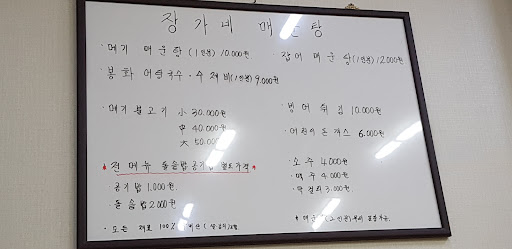 장가네 매운탕
· 메기 매운탕 (1인분) 10.000원
· 잡어 매운탕 (1인분) 12.000원
· 봉화 어탕국수 · 수제비 (1인분) 9.000원
· 메기 불고기 小 30.000원
中 40.000원
大 50.000
· 빙어 튀김 10.000원
· 어린이 돈까스 6.000원
* 전 메뉴 돌솥밥 공기밥 별도가격 *
공기밥 1.000원.
· 돌솥밥 2.000원
· 소주 4.000원
· 맥주 4.000원
· 막걸리 3.000원
· 모든 재료 100%
* 매운탕 (2인분) 부터